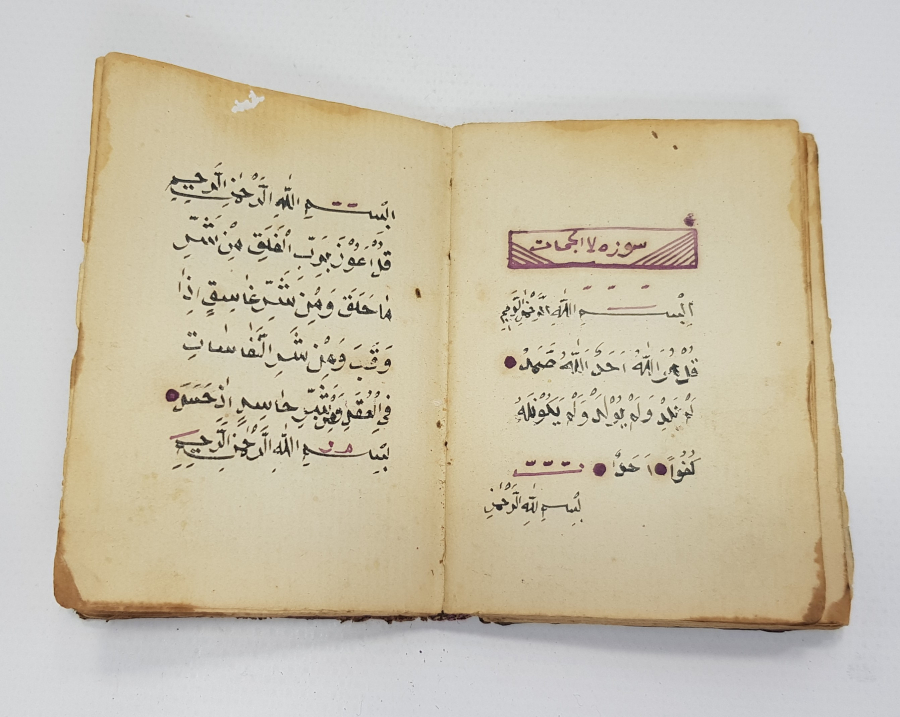 سوره لا الجحات
البسم الله الرحمن الرحيم
قل هو الله احد الله صمد
لم يلد ولم يولد ولم يكونله
كفوا احدا
بسم الله الرحمن
البسم الله الرحمن الرحيم
قل اعوذ برب الفلق من شر
ما خلق ومن شر غاسق اذا
وقب ومن شر النفاسات
في العقد ومن شر حاسد اذ حسد
بسم الله الرحمن الرحيم